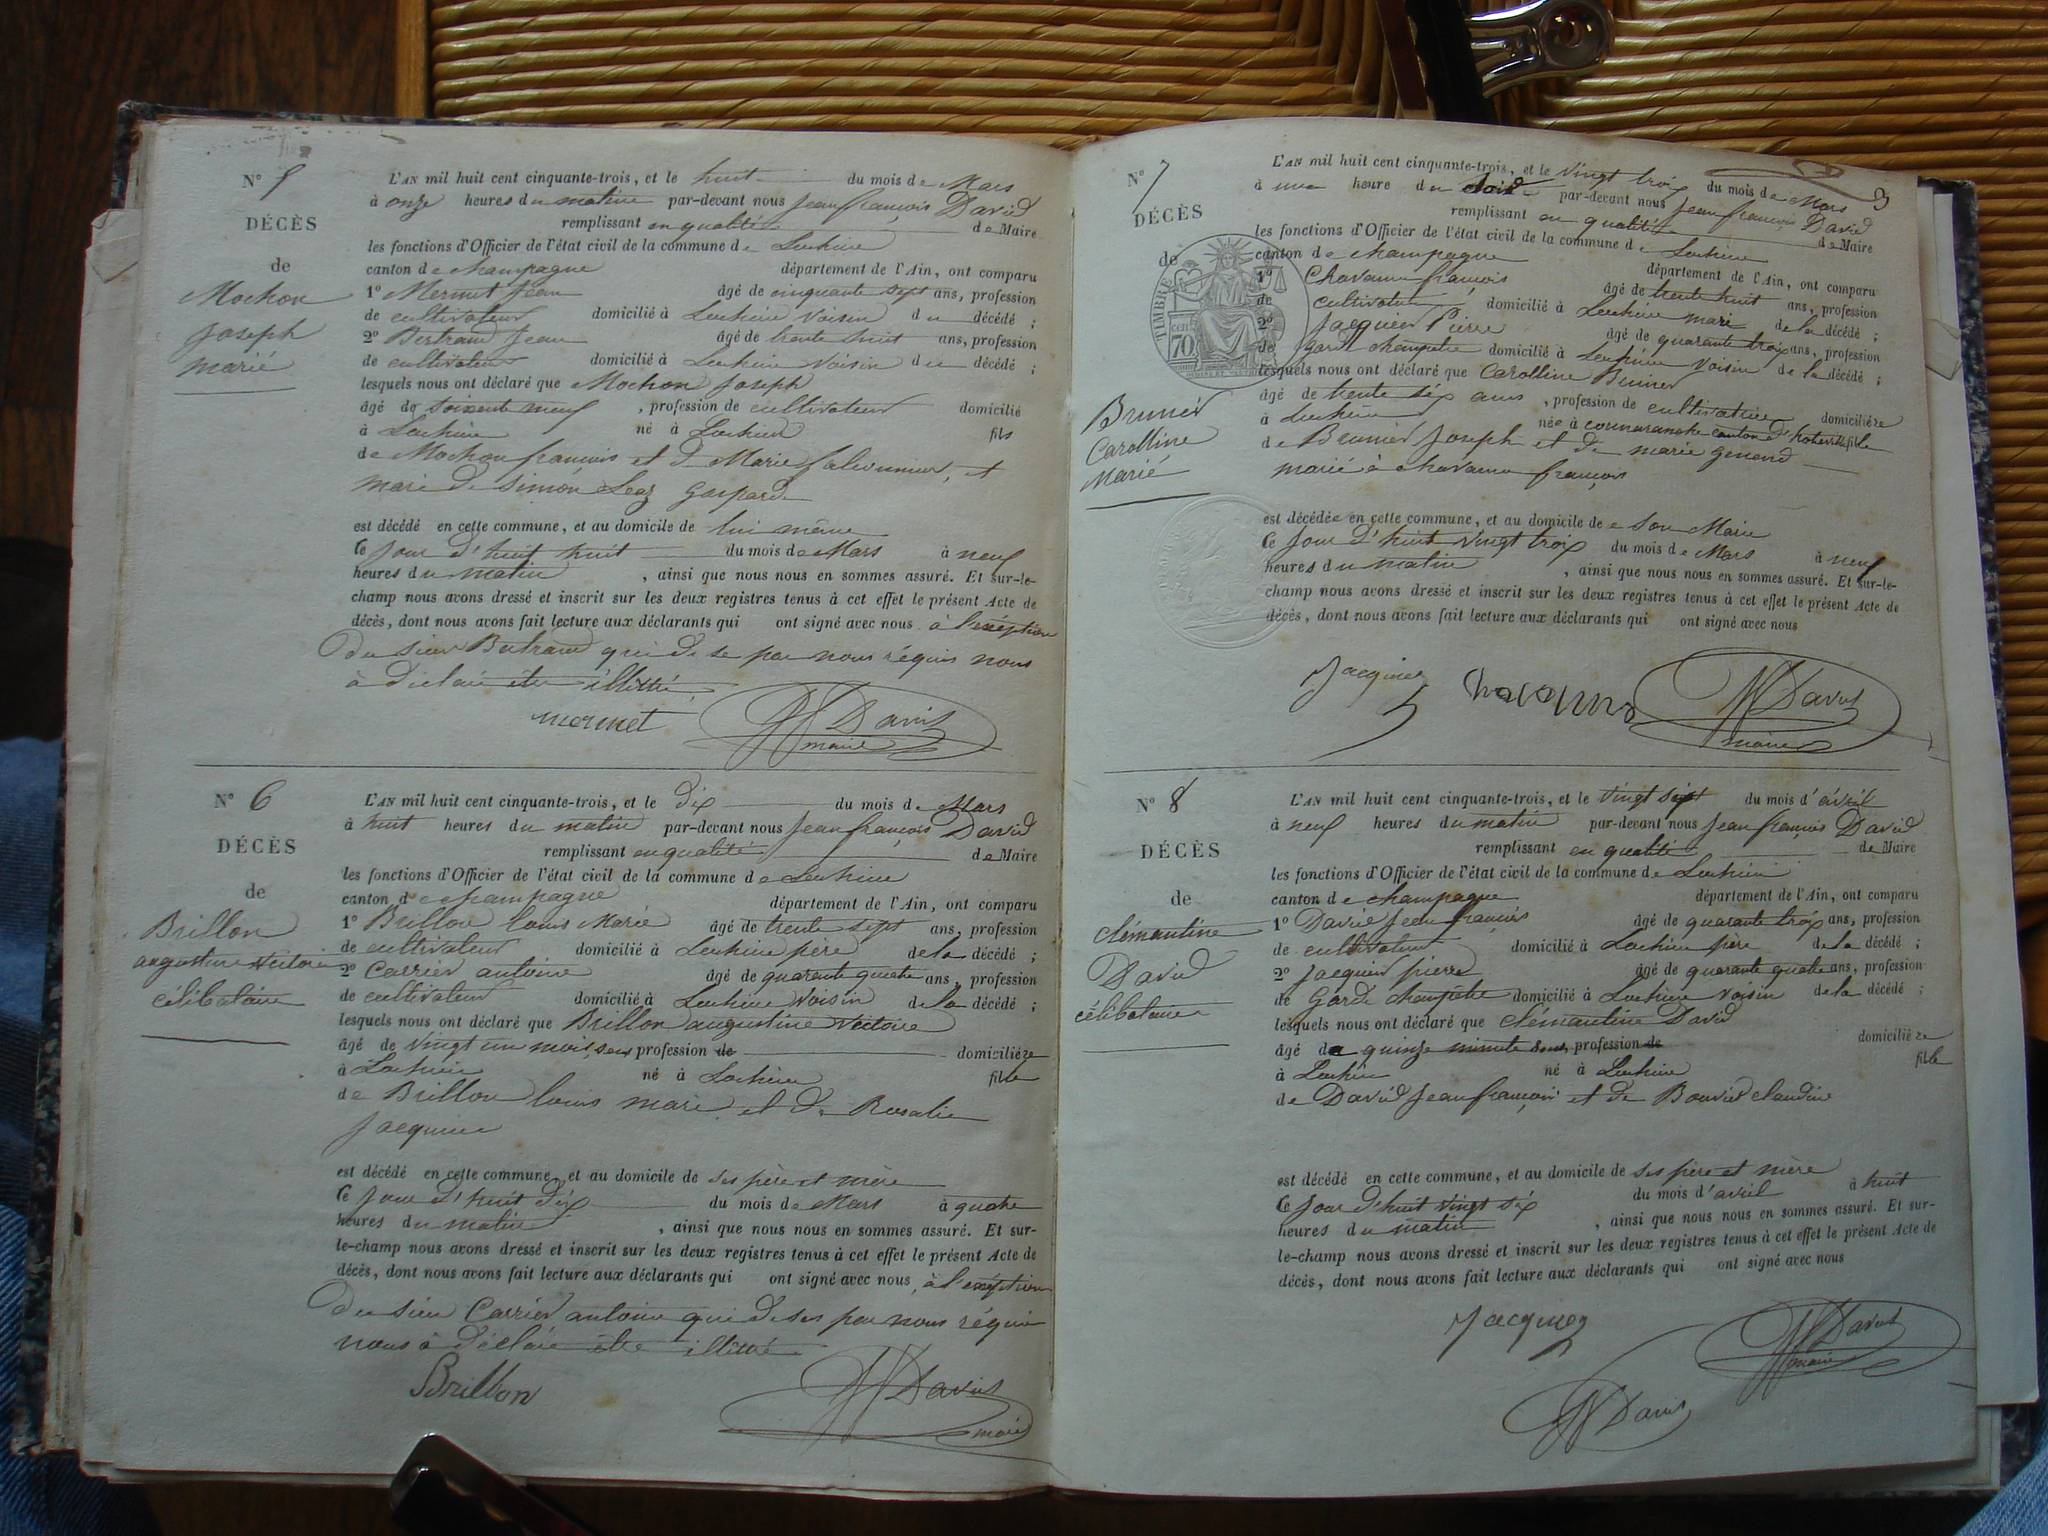 N° 5
DÉCÈS
de
Mochon
Joseph
marié
L'AN mil huit cent cinquante-trois, et le huit du mois de Mars
à onze heures du matin par-devant nous Jean françois David
remplissant en qualité de Maire
les fonctions d'Officier de l'état civil de la commune de Lochieu
canton de champagne département de l'Ain, ont comparu
1° Mermet Jean âgé de cinquante sept ans, profession
de cultivateur domicilié à Lochieu voisin du décédé ;
2° Bertrand Jean âgé de trente huit ans, profession
de cultivateur domicilié à Lochieu voisin du décédé ;
lesquels nous ont déclaré que Mochon Joseph
âgé de soixente neuf , profession de cultivateur domicilié
à Lochieu né à Lochieu fils
de Mochon francois et de Marie et
marié de Simon Gasparde
est décédé en cette commune, et au domicile de lui même
Ce Jour d'huit huit du mois de Mars à neuf
heures du matin , ainsi que nous nous en sommes assuré. Et sur-le-
champ nous avons dressé et inscrit sur les deux registres tenus à cet effet le présent Acte de
décès, dont nous avons fait lecture aux déclarants qui ont signé avec nous à l'exéption
du sieur Bertrand qui de se par nous réquis nous
à déclaré être illittré
mermet JF David
maire
N° 6
DÉCÈS
de
Brillon
augustine victoire
célibataire
L'AN mil huit cent cinquante-trois, et le dix du mois de Mars
à huit heures du matin par-devant nous Jean françois David
remplissant en qualité de Maire
les fonctions d'Officier de l'état civil de la commune de Lochieu
canton de champagne département de l'Ain, ont comparu
1° Brillon louis Marie âgé de trente sept ans, profession
de cultivateur domicilié à Lochieu père de la décédé ;
2° Carrier antoine âgé de quarante quatre ans, profession
de cultivateur domicilié à Lochieu voisin de la décédé ;
lesquels nous ont déclaré que Brillon augustine victoire
âgé de vingt un mois, sans profession de domiciliée
à Lochieu né à Lochieu fille
de Brillon louis marie et de Rosalie
Jacquier
est décédé en cette commune, et au domicile de ses père et mère
Ce Jour d'huit dix du mois de Mars à quatre
heures du matin , ainsi que nous nous en sommes assuré. Et sur-
le-champ nous avons dressé et inscrit sur les deux registres tenus à cet effet le présent Acte de
décès, dont nous avons fait lecture aux déclarants qui ont signé avec nous à l'exéption
du sieur Carrier antoine qui de ses par nous réquis
nous à déclaré être illittré
Brillon JF David
maire
N° 7
DÉCÈS
de
TIMBRE
70 cen
Brunier
Carolline
Marié
3
L'AN mil huit cent cinquante-trois, et le vingt trois du mois de Mars
à une heure du soir par-devant nous Jean françois David
remplissant en qualité de Maire
les fonctions d'Officier de l'état civil de la commune de Lochieu
canton de champagne département de l'Ain, ont comparu
1° Chavanne françois âgé de trente huit ans, profession
de cultivateur domicilié à Lochieu mari de la décédé ;
2° Jacquier Pierre âgé de quarante trois ans, profession
de garde champetre domicilié à Lochieu voisin de la décédé ;
lesquels nous ont déclaré que Carolline Brunier
âgé de trente six ans , profession de cultivatrice domiciliée
à Lochieu née à cormaranche canton d'hoteville fille
de Brunier Joseph et de marie genend
marié à chavanne françois
est décédée en cette commune, et au domicile de son Marie
Ce Jour d'huit vingt trois du mois de Mars à neuf
heures du matin , ainsi que nous nous en sommes assuré. Et sur-le-
champ nous avons dressé et inscrit sur les deux registres tenus à cet effet le présent Acte de
décès, dont nous avons fait lecture aux déclarants qui ont signé avec nous
Jacquier Chavanne JF David
maire
N° 8
DÉCÈS
de
clémantine
David
célibataire
L'AN mil huit cent cinquante-trois, et le vingt sept du mois d'avril
à neuf heures du matin par-devant nous Jean françois David
remplissant en qualité de Maire
les fonctions d'Officier de l'état civil de la commune de Lochieu
canton de champagne département de l'Ain, ont comparu
1° David Jean françois âgé de quarante trois ans, profession
de cultivateur domicilié à Lochieu père de la décédé ;
2° Jacquier pierre âgé de quarante quatre ans, profession
de Garde champetre domicilié à Lochieu voisin de la décédé ;
lesquels nous ont déclaré que clémantine David
âgé de quinze minute sans profession de domiciliée
à Lochieu né à Lochieu fille
de David Jean françois et de Bouvier claudine
est décédé en cette commune, et au domicile de ses père et mère
Ce Jour d'huit vingt six du mois d'avril à huit
heures du matin , ainsi que nous nous en sommes assuré. Et sur-
le-champ nous avons dressé et inscrit sur les deux registres tenus à cet effet le présent Acte de
décès, dont nous avons fait lecture aux déclarants qui ont signé avec nous
Jacquier JF David
maire
JF David